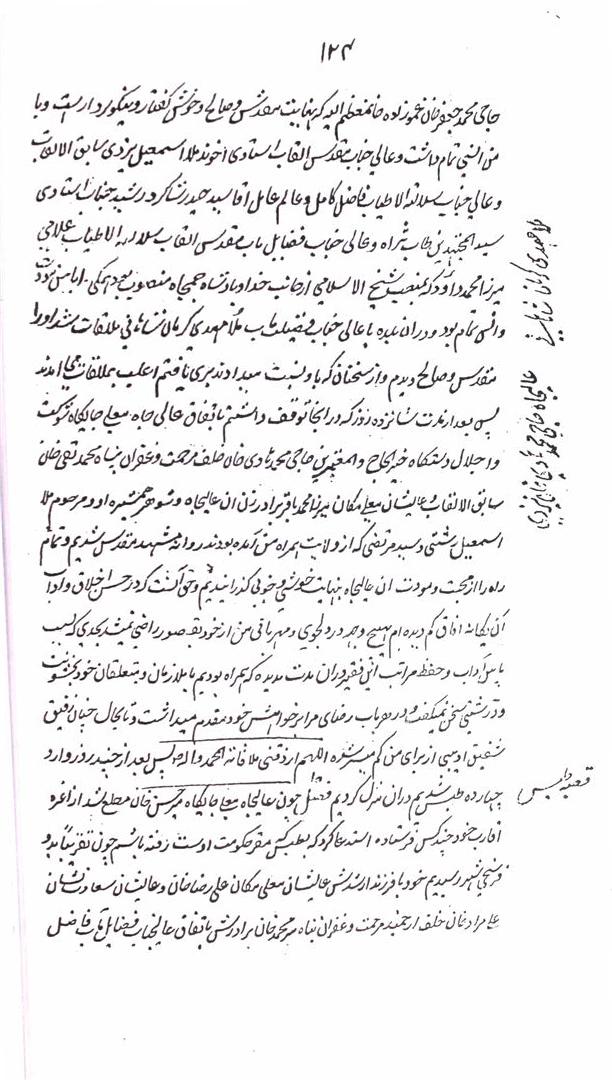 ۱۲۴
حاجی محمد جعفر خان عموزاده خان معظم الیه که بغایت مقدس و صالح و خوش گفتار و نیکو کردار است و با
من انسی تمام داشت و عالی جناب مقدس القاب استادی آخوند ملا اسمعیل یزدی سابق الالقاب
و عالی جناب سلالة الاطیاب فاضل کامل و عالم عامل آقا سید حیدر شاگرد رشید جناب استادی
سید المجتهدین طاب ثراه و عالی جناب فضایل مآب مقدس القاب سلالة الاطیاب
میرزا محمد داود که بمنصب شیخ الاسلامی از جانب خدا و پادشاه جمجاه منصوب بود همگی را با من
والفتی تمام بود و در آن بلده با عالی جناب فضیلت مآب ملا مهدی کرمانشاهانی ملاقات شد او را
مقدس و صالح دیدم و از سخنان که باو نسبت میدادند بری یافتم اغلب بملاقات می آمدند
پس بعد از مدت شانزده روز که در آنجا توقف داشتم باتفاق عالی جاه معلی جایگاه شوکت
و اجلال دستگاه خیر الحاج و المعتمرین حاجی محمد هادی خان خلف مرحمت و غفران پناه محمد تقی خان
سابق الالقاب و عالیشان معلی مکان میرزا محمد باقر برادر زن آن عالیجاه و شوهر همشیره او و مرحوم ملا
اسمعیل رشتی و سید مرتضی که از ولایت همراه من آمده بودند روانه مشهد مقدس شدیم و تمام
راه را از محبت و مودت آن عالیجاه بنهایت خوشی و خوبی گذرانیدیم و حق آنست که در حسن اخلاق و آداب
آن یگانه آفاق کم دیده ام بهیچ وجه در دلجوئی و مهربانی من از خود بقصور راضی نمیشد بحدی که بسبب
پاس آداب و حفظ مراتب این فقیر در آن مدت مدیده که همراه بودیم با ملازمان و متعلقان خود بخشونت
و درشتی سخن نمیگفت و در هر باب رضای مرا بر خواهش خود مقدم میداشت و تا بحال چنان رفیق
شفیق ادیبی از برای من کم میسر شده اللهم ارزقنی ملاقاته بمحمد و آله پس بعد از چند روز وارد
چهارده طبس شدیم در آن منزل کردیم چون عالیجاه معلی جایگاه میر حسن خان مطلع شد از اعزه
اقارب خود چند کس فرستاده استدعا کرد که بطبس که مقر حکومت اوست رفته باشم چون تقریباً بدو
فرسخی شهر رسیدیم خود با فرزند ارشدش عالیشان معلی مکان علی رضا خان و عالیشان سعادت نشان
علی مراد خان خلف ارجمند مرحمت و غفران پناه میر محمد خان برادرش باتفاق عالیجناب فضایل مآب فاضل
ملا مهدی کرمانشاهانی
عالیجاه حاجی محمد هادی خان یزدی
قصبه طبس